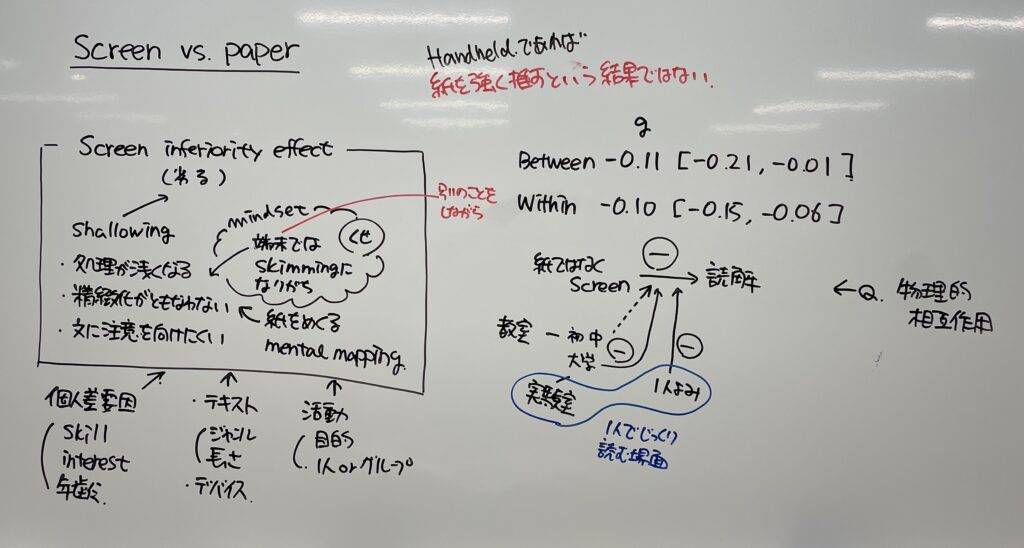 Screen vs. paper
Handheldであれば
紙を強く推すという結果ではない.
Screen inferiority effect
(劣る)
shallowing
・処理が浅くなる
・精緻化がともなわない
・文に注意を向けにくい
mindset
くせ
端末では
skimmingに
なりがち
紙をめくる
mental mapping.
別のことを
しながら
個人差要因
skill
interest
年齢
・テキスト
ジャンル
長さ
・デバイス.
活動
目的
・1人orグループ
g
Between -0.11 [-0.21, -0.01]
Within -0.10 [-0.15, -0.06]
紙ではなく
Screen
−
読解
教室 − 初中
大学
−
−
実験室
1人よみ
1人でじっくり
読む場面
←Q. 物理的
相互作用